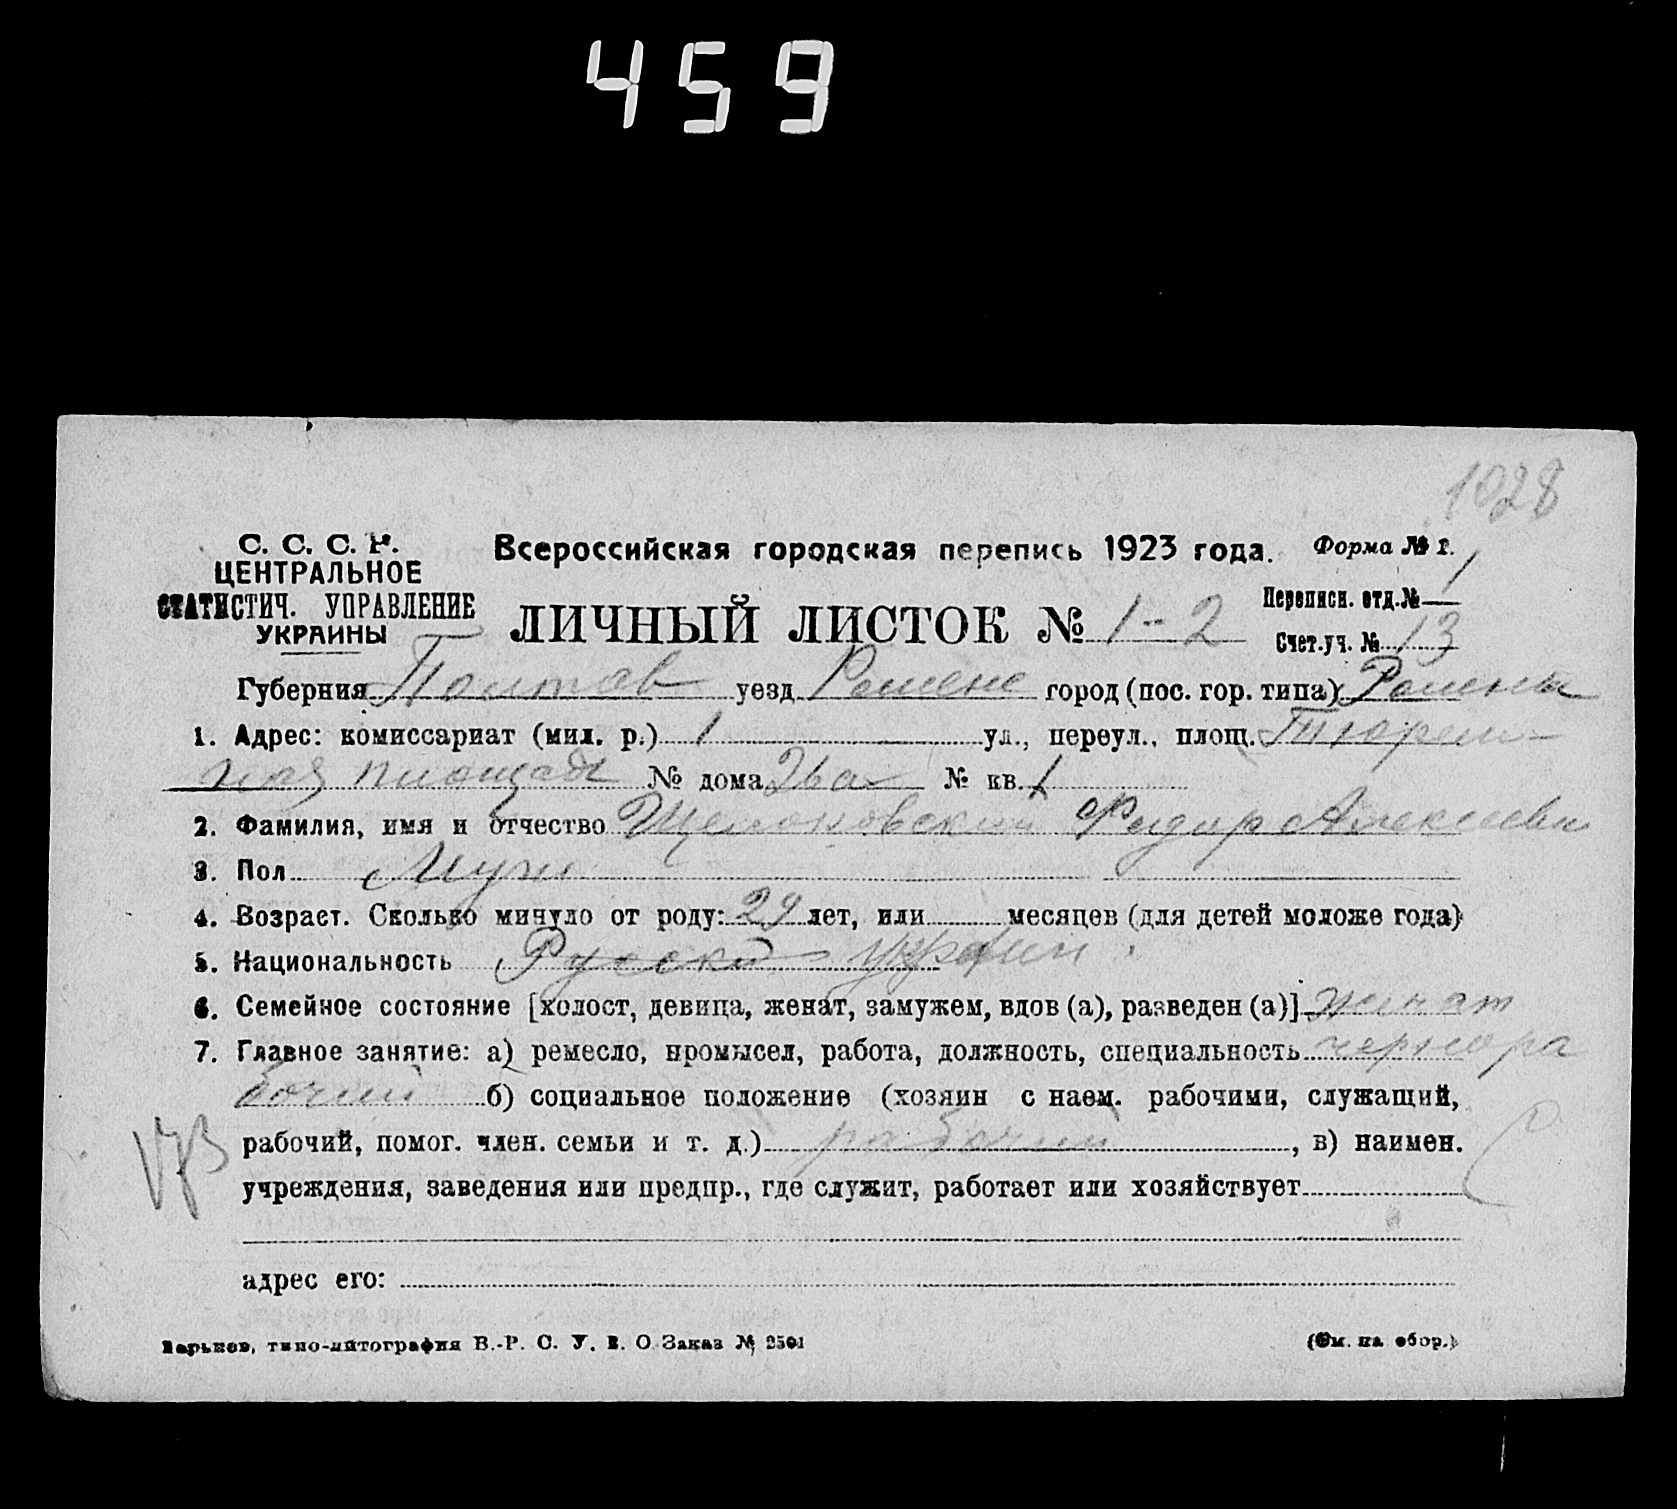 459
1028
С. С. С. Р.
ЦЕНТРАЛЬНОЕ
СТАТИСТИЧ. УПРАВЛЕНИЕ
УКРАИНЫ
Всероссийская городская перепись 1923 года.
Форма № 1.
ЛИЧНЫЙ ЛИСТОК № 1-2
Переписн. отд. № 1
Счет. уч. № 13
Губерния Полтав уезд Ромене город (пос. гор. типа) Ромены
1. Адрес: комиссариат (мил. р.) 1 ул., переул., площ. Тюрем-
ная площадь № дома 26а № кв. 1
2. Фамилия, имя и отчество Федир Алексеевич
3. Пол Муж
4. Возраст. Сколько минуло от роду: 29 лет, или месяцев (для детей моложе года)
5. Национальность Русский украин
6. Семейное состояние [холост, девица, женат, замужем, вдов (а), разведен (а)] женат
7. Главное занятие: а) ремесло, промысел, работа, должность, специальность чернора
бочий б) социальное положение (хозяин с наем. рабочими, служащий,
рабочий, помог. член. семьи и т. д.) рабочий, в) наимен.
учреждения, заведения или предпр., где служит, работает или хозяйствует
адрес его:
Харьков, типо-литография В.-Р. С. У. В. О. Заказ № 2501
(См. на обор.)